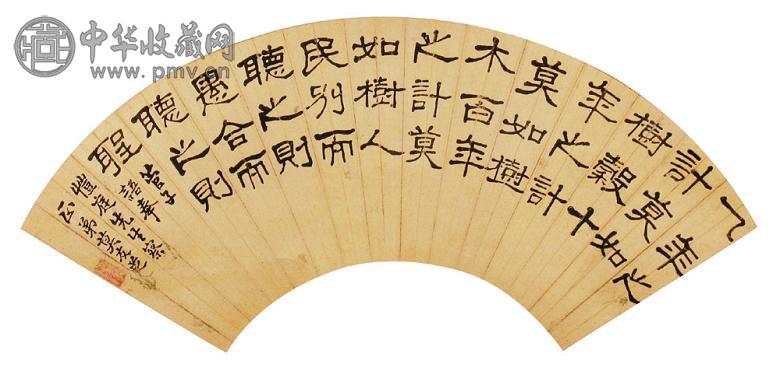 中华收藏网
www.pmv.cn
一年之
計莫如
樹穀十
年之計
莫如樹
木百年
之計莫
如樹人
民別而
聽之則
愚合而
聽之則
聖
管子
語奉
愷庭先生察
正弟莫友芝